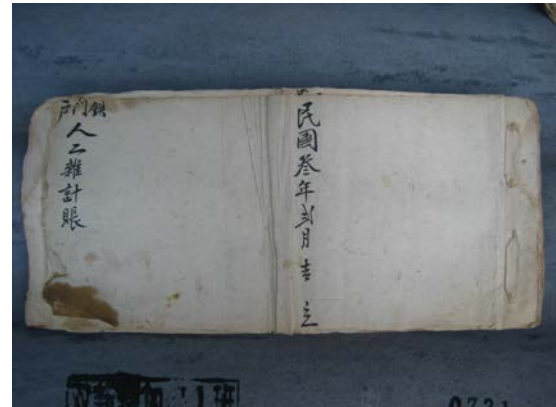 民國叁年弍月吉立
鉄門戶
人工雜計賬